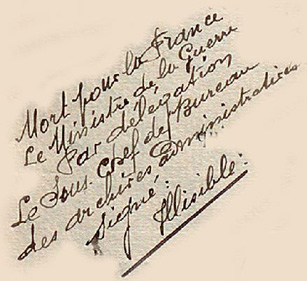 Mort pour la France
Le Ministre de la Guerre
Par délégation
Le Sous Chef de Bureau
des archives administratives
Signé:
Illisible: